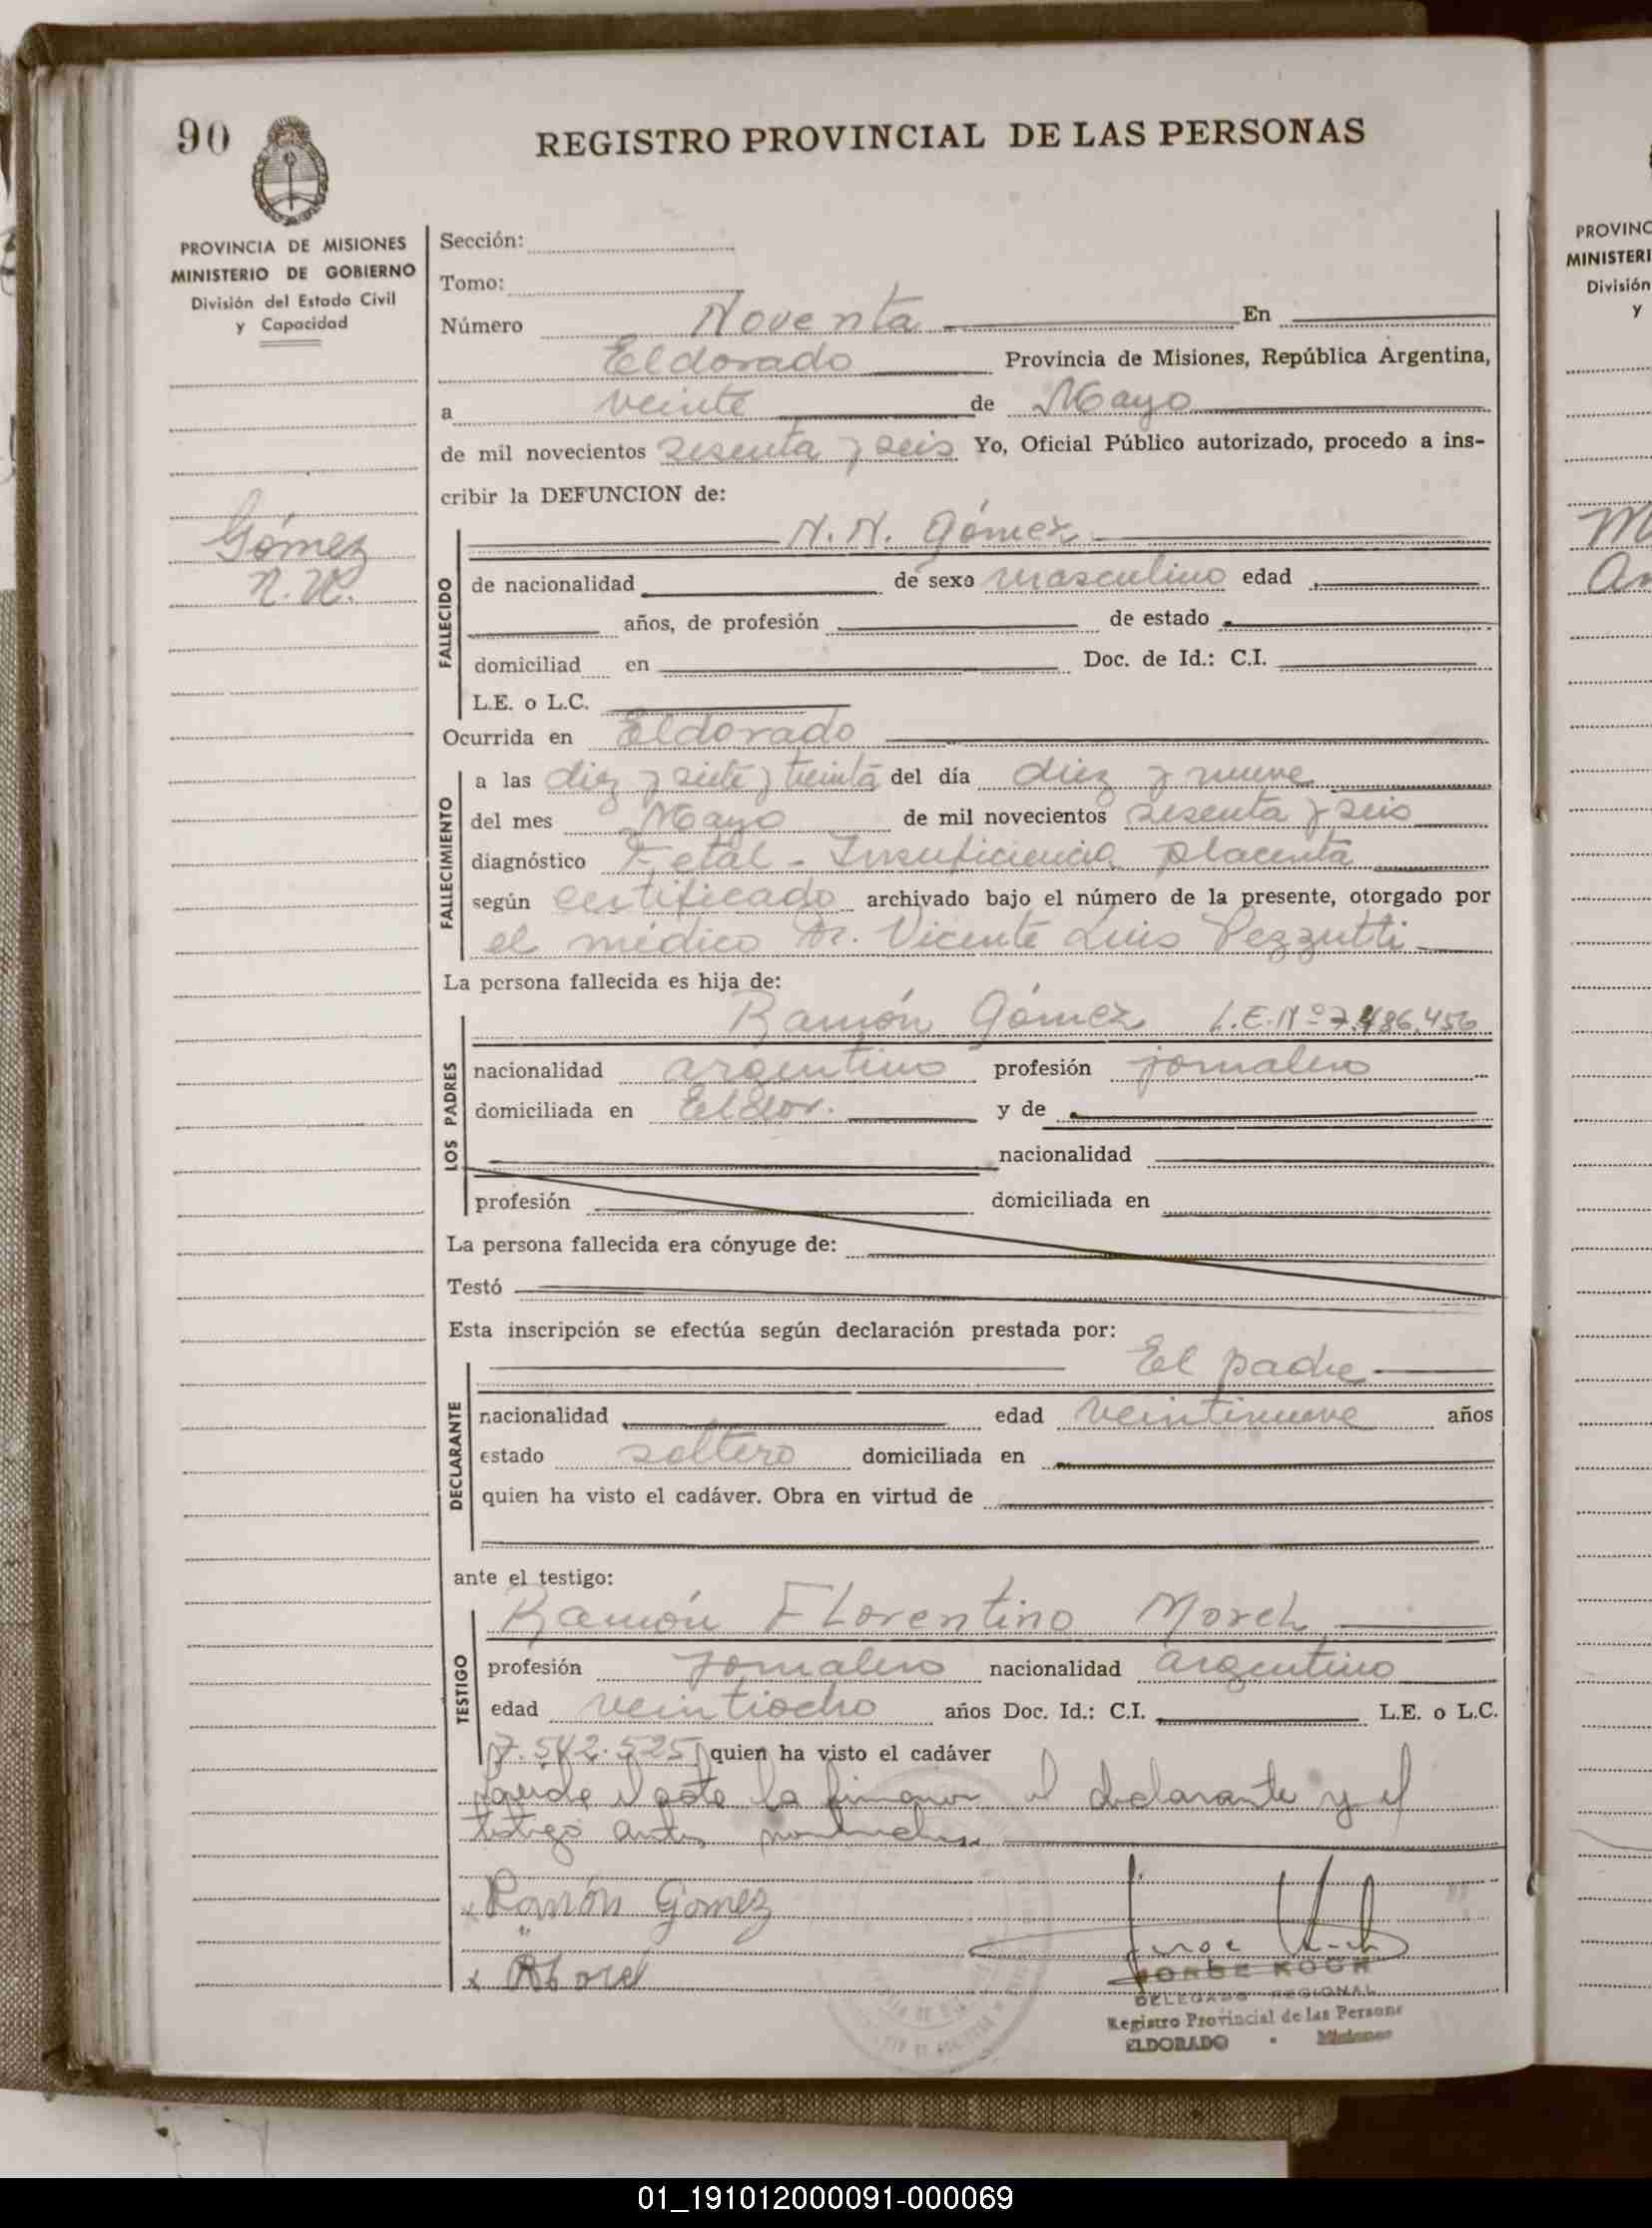 90
REGISTRO PROVINCIAL DE LAS PERSONAS
PROVINCIA DE MISIONES
MINISTERIO DE GOBIERNO
División del Estado Civil
y Capacidad
Gómez
N.N.
Sección:
Tomo:
Número Noventa En
Eldorado Provincia de Misiones, República Argentina,
a veinte de Mayo
de mil novecientos sesenta y seis Yo, Oficial Público autorizado, procedo a ins-
cribir la DEFUNCION de:
FALLECIDO
N. N. Gómez
de nacionalidad de sexo masculino edad
años, de profesión de estado
domiciliad en Doc. de Id.: C.I.
L.E. o L.C.
Ocurrida en Eldorado
FALLECIMIENTO
a las diez y siete y treinta del día diez y nueve
del mes Mayo de mil novecientos sesenta y seis
diagnóstico Fetal - Insuficiencia placenta
según certificado archivado bajo el número de la presente, otorgado por
el médico Dr. Vicente Luis Pezzutti
La persona fallecida es hija de:
LOS PADRES
Ramón Gómez L.E.Nº 7.486.456
nacionalidad argentino profesión jornalero
domiciliada en Eldor. y de
nacionalidad
profesión domiciliada en
La persona fallecida era cónyuge de:
Testó
Esta inscripción se efectúa según declaración prestada por:
DECLARANTE
El padre
nacionalidad edad veintinueve años
estado soltero domiciliada en
quien ha visto el cadáver. Obra en virtud de
ante el testigo:
TESTIGO
Ramón Florentino Morel
profesión jornalero nacionalidad argentino
edad veintiocho años Doc. Id.: C.I. L.E. o L.C.
7.542.525 quien ha visto el cadáver
el acta la firman el declarante y el
testigo antes
x Ramón Gomez
x
JORGE KOCH
DELEGADO REGIONAL
Registro Provincial de las Persons
ELDORADO - Misiones
PROVINC
MINISTERI
División
y
M
An
01_191012000091-000069